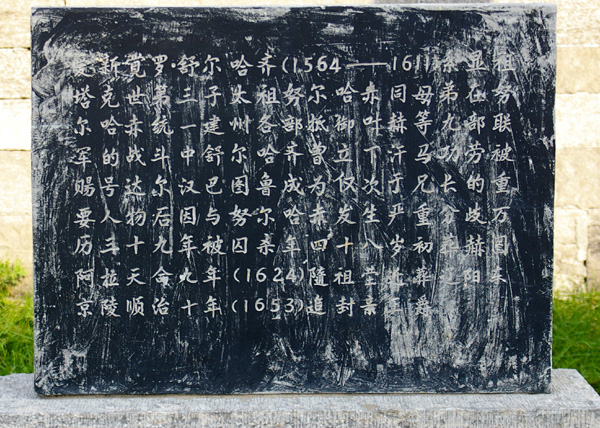 爱新觉罗·舒尔哈齐(1564——1611)系显祖
塔克世第三子太祖努尔哈赤同母弟在努
尔哈赤统一建州各部抵御叶赫等九部联
军的战斗中舒尔哈齐曾立下汗马功劳被
赐号达尔汉巴图鲁成为仅次于兄长的重
要人物后因与努尔哈赤发生严重分歧万
历三十九年被囚卒年四十八岁初葬赫图
阿拉天命九年(1624)随祖茔迁辽阳东
京陵顺治十年(1653)追封亲王爵